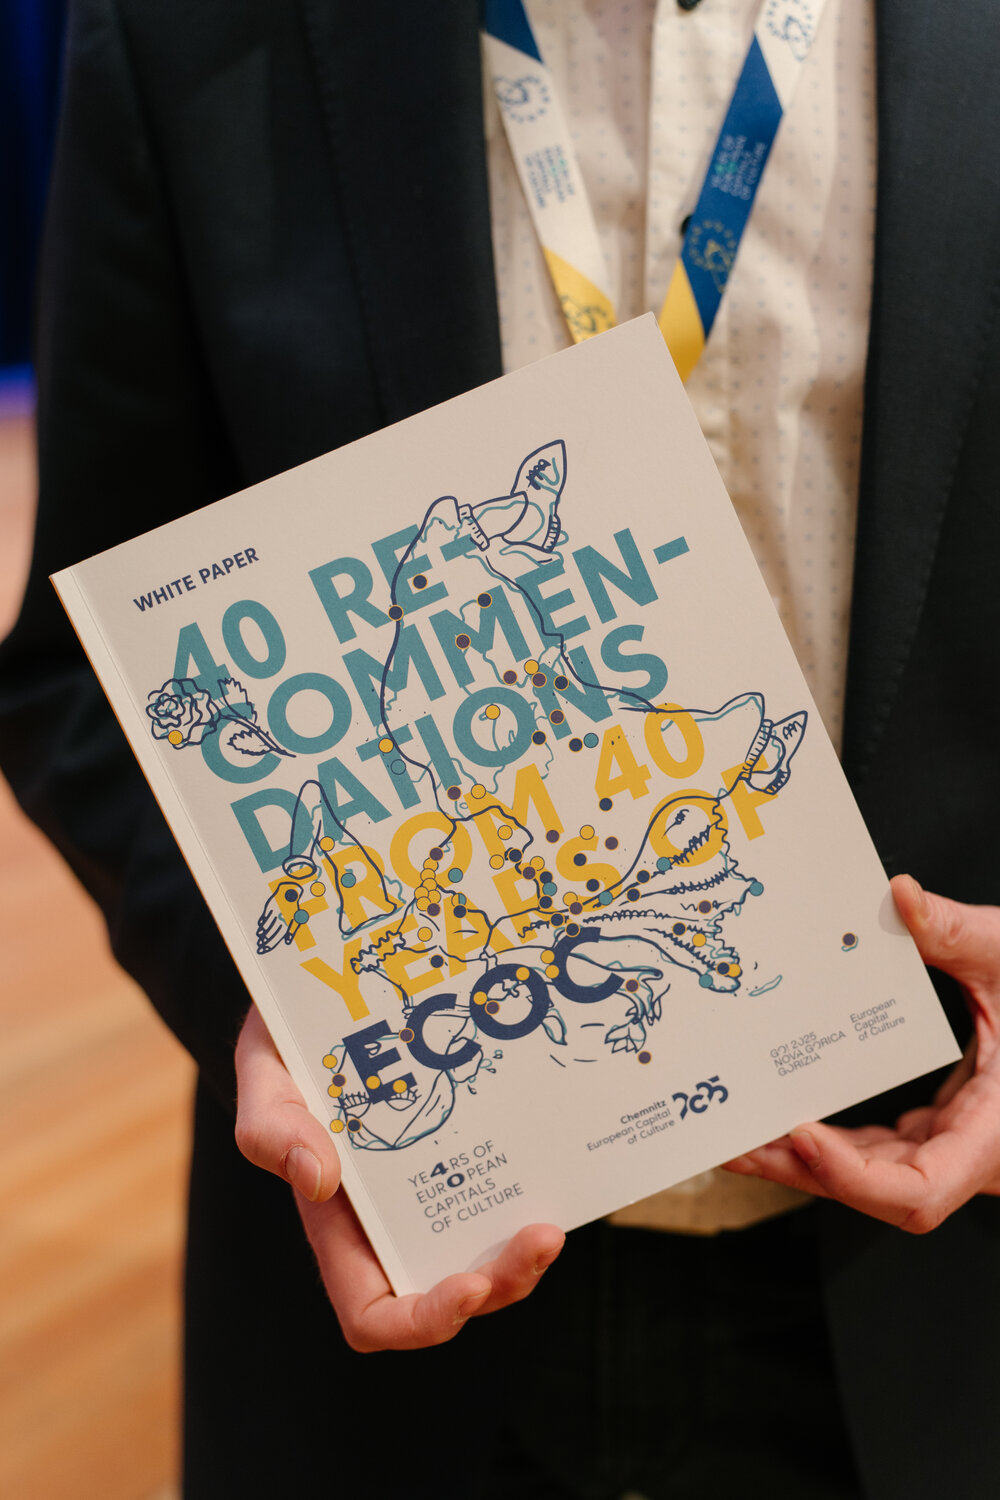 WHITE PAPER
40 RE-
COMMEN-
DATIONS
FROM 40
YEARS OF
ECOC
YE4RS OF
EUR0PEAN
CAPITALS
OF CULTURE
Chemnitz
European Capital
of Culture
2025
GO! 2025
NOVA GORICA
GORIZIA
European
Capital
of Culture